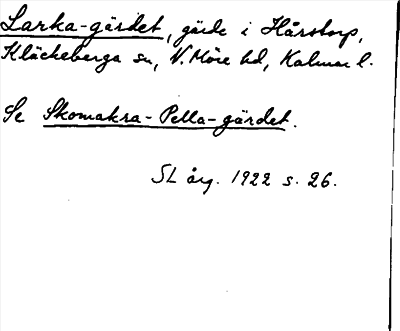 Larka-gärdet, gärde i Hårstorp,
Kläckeberga sn, N. Möre hd, Kalmar l.
Se Skomakra-Pella-gärdet.
SL årg. 1922 s. 26.